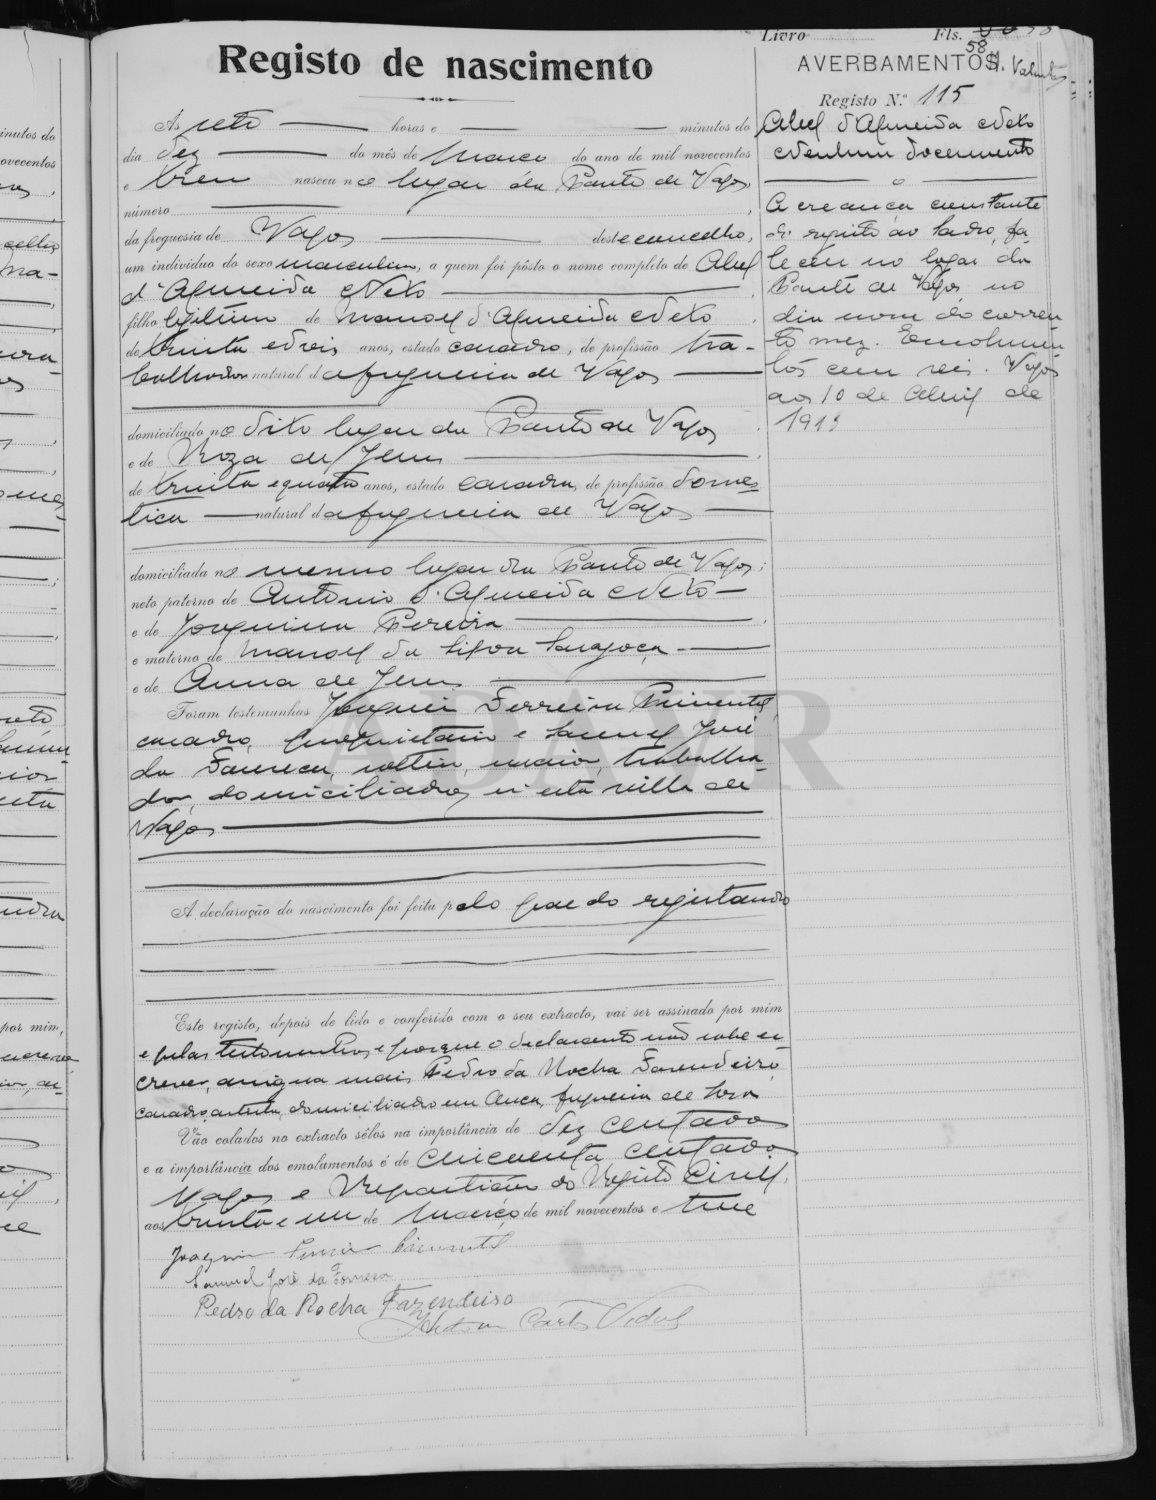 Livro Fls. 58
Registo de nascimento
AVERBAMENTOS
Registo N.º 115
Ás sete horas e minutos do
dia dez do mês de Março do ano de mil novecentos
e treze nasceu no lugar da Ponte de Vagos,
número
da freguesia de Vagos deste concelho,
um individuo do sexo masculino, a quem foi pôsto o nome completo de Abel
d'Almeida Neto
filho legitimo de Manoel d'Almeida Neto
de trinta e dois anos, estado casado, de profissão tra-
balhador natural da freguesia de Vagos
domiciliado no dito lugar da Ponte de Vagos
e de Roza de Jesus
de trinta e quatro anos, estado casada, de profissão domes-
tica natural da freguesia de Vagos
domiciliada no mesmo lugar da Ponte de Vagos;
neto paterno de Antonio d'Almeida Neto
e de Joaquina Pereira
e materno de Manoel da Silva
e de Anna de Jesus
Foram testemunhas Joaquim Ferreira Pimentel,
casado, proprietario e Samuel José
da Fonseca, solteiro, maior, trabalha-
dor, domiciliados n'esta villa de
Vagos
A declaração do nascimento foi feita pelo pae do registando
Este registo, depois de lido e conferido com o seu extracto, vai ser assinado por mim
e pelas testemunhas e porque o declarante não sabe es-
crever, assigna mais Pedro da Rocha Fazendeiro,
casado, artista, domiciliado em freguesia de Soza
Vão colados no extracto sêlos na importância de dez centavos
e a importância dos emolumentos é de cincoenta centavos
Vagos e Repartição do Registo Civil,
aos trinta e um de Março de mil novecentos e treze
Joaquim Ferreira Pimentel
Samuel José da Fonseca
Pedro da Rocha Fazendeiro
Carlos Vidal
Abel d'Almeida Neto
Nenhum documento
A creança constante
do registo ao lado, fa-
leceu no logar da
Ponte de Vagos no
dia nove do corren-
te mez. Emolumen-
tos cem reis. Vagos
aos 10 de Abril de
1913
ADAVR